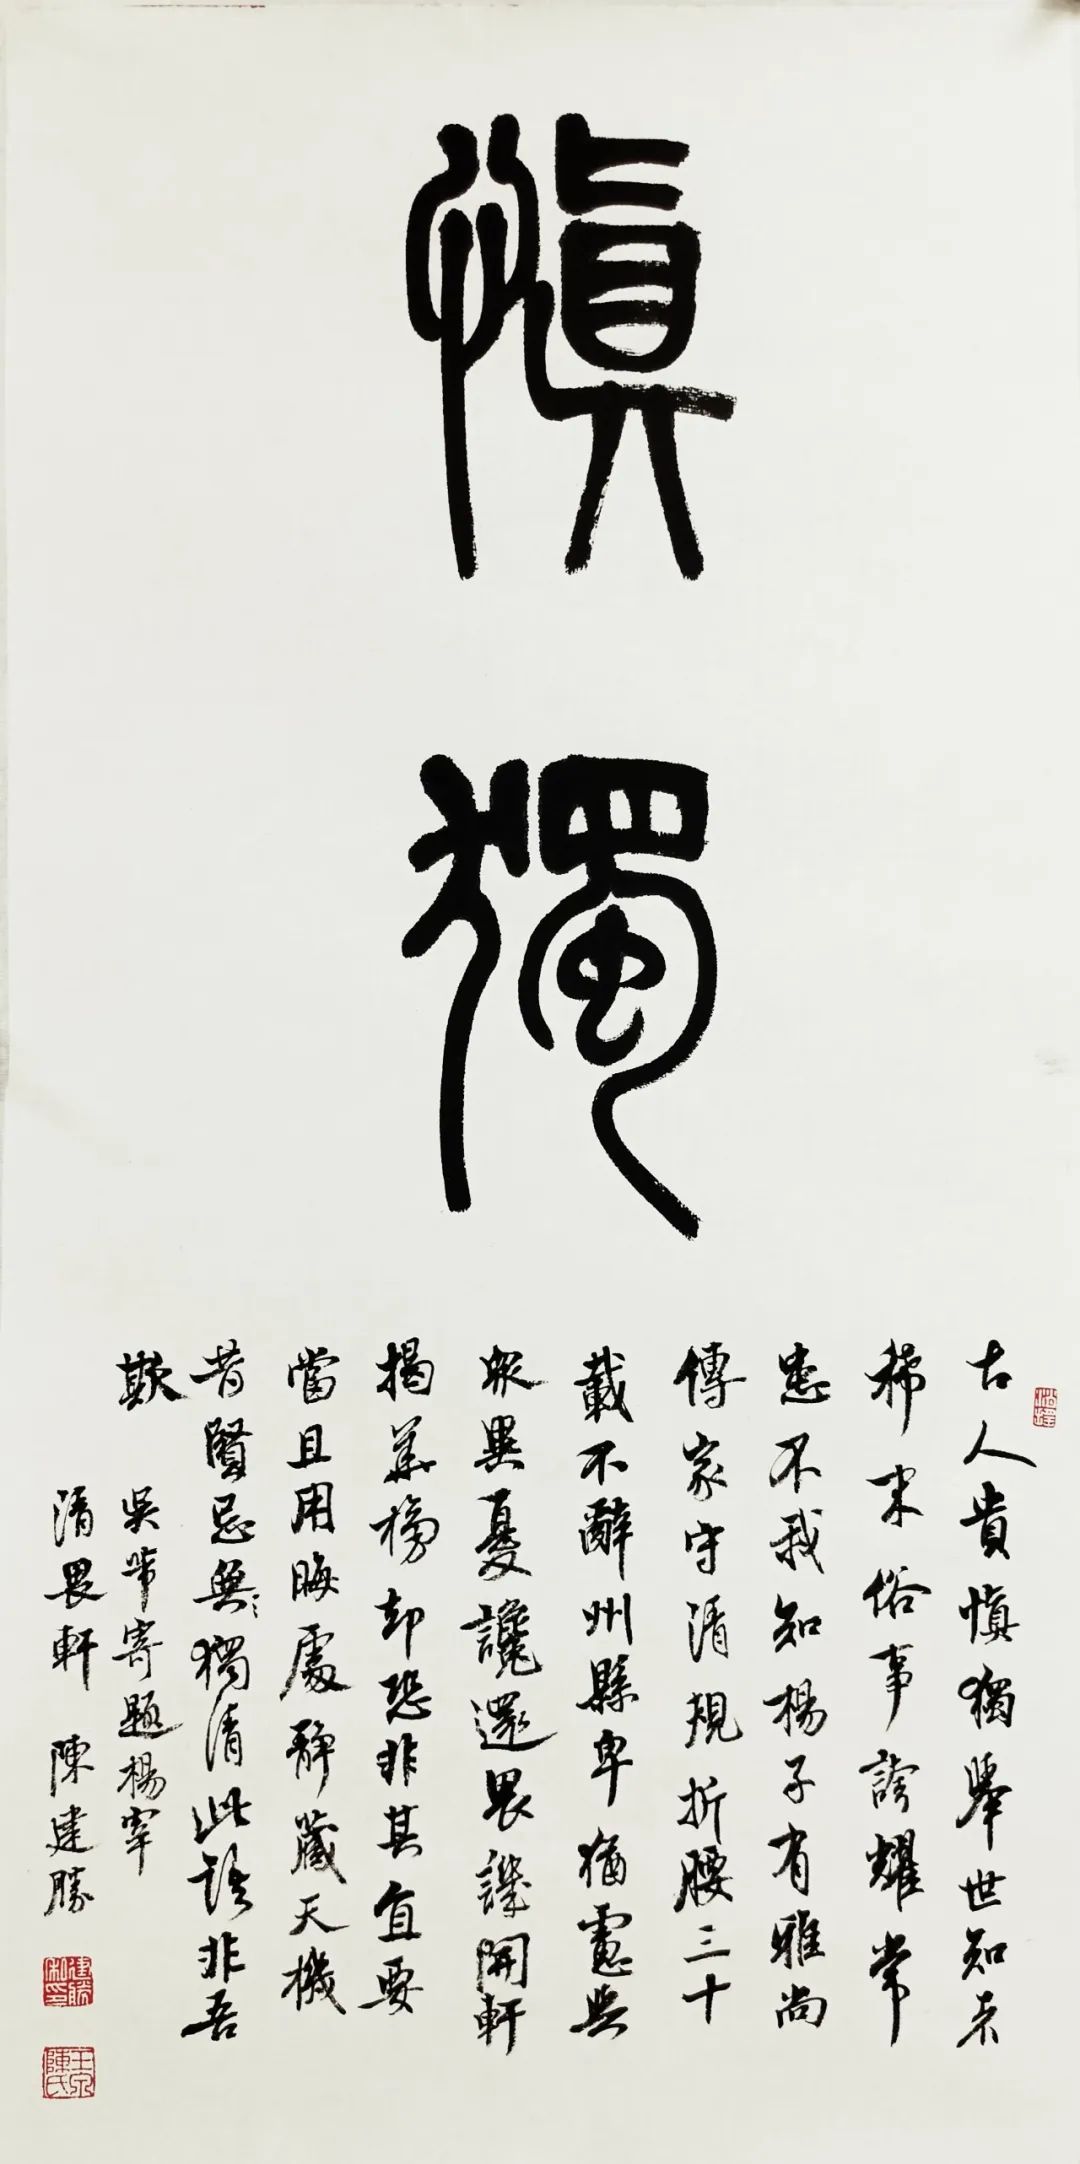 慎
獨
古人貴慎獨舉世知者
稀末俗事誇耀常
患不我知楊子有雅尚
傳家守清規折腰三十
載不辭州縣卑猶慮與
眾異憂讒還畏譏開軒
揭華榜却恐非其宜要
當且用晦處靜藏天機
昔賢忌無〻獨清此語非吾
欺
吳芾寄題楊宰
清畏軒 陳建勝
建勝私印
陳氏